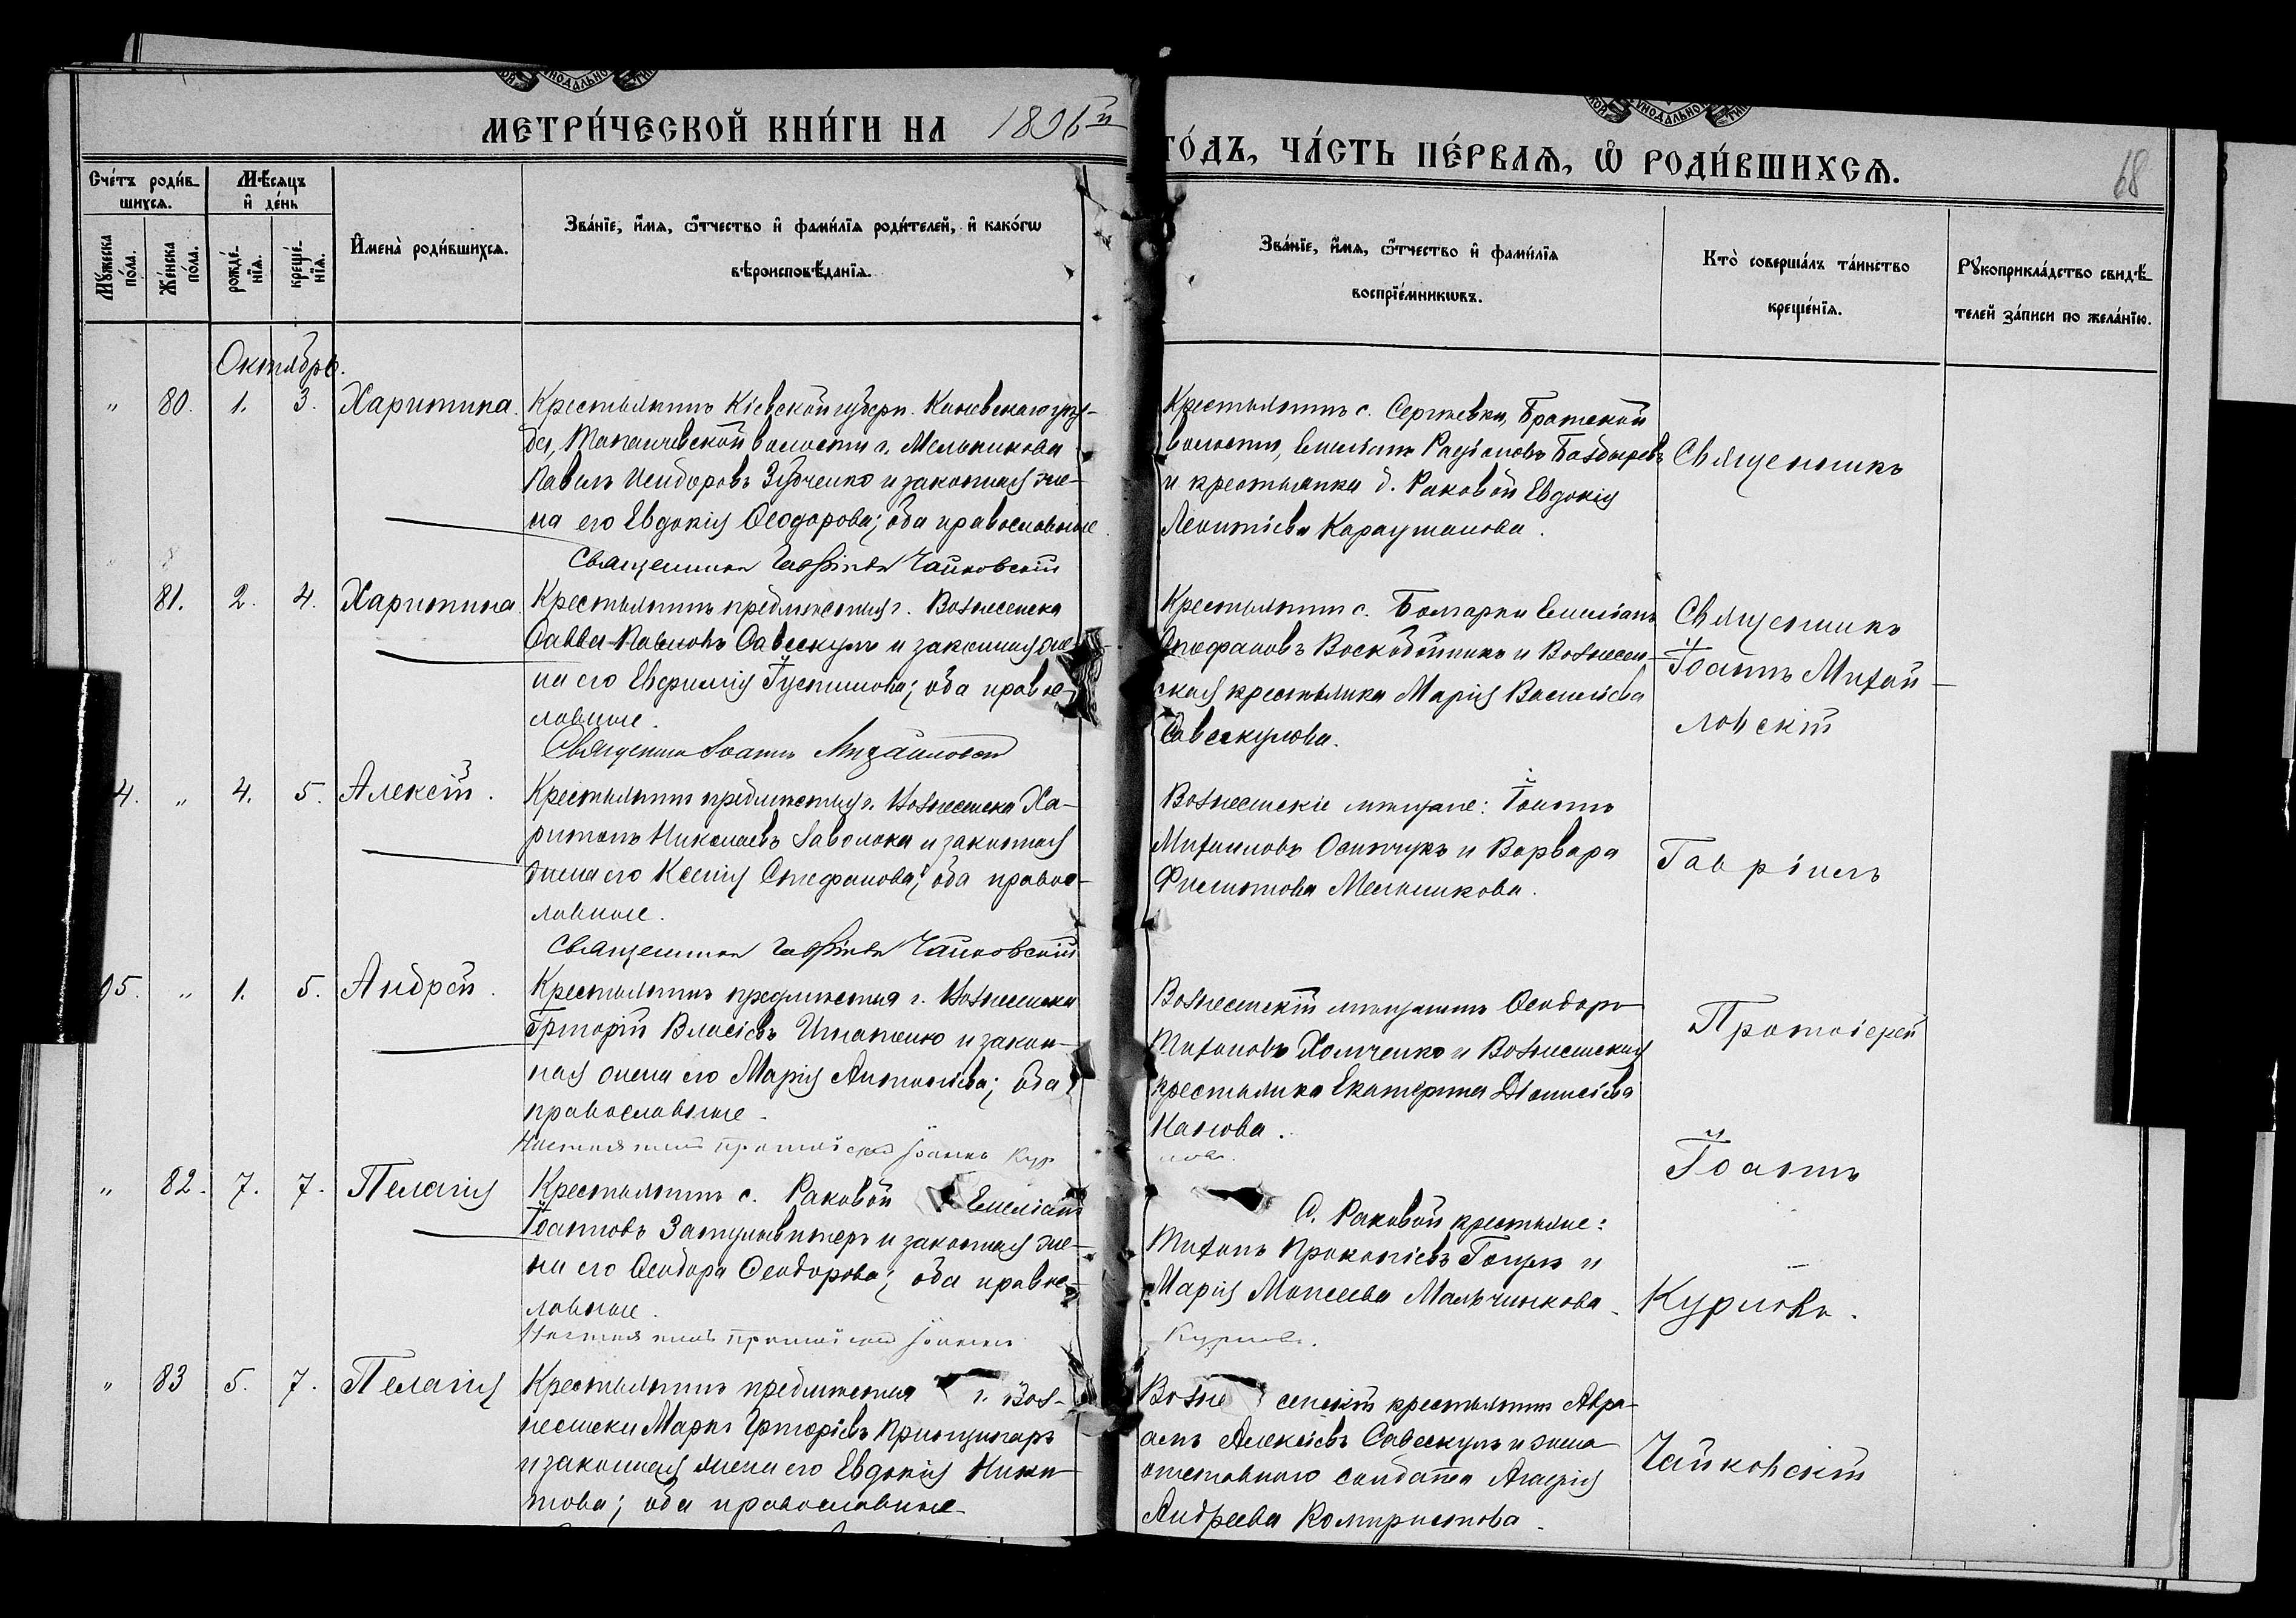 МЕТРИ́ЧЕСКОЙ КНИ́ГИ НА 1896й
ГО́ДЪ, ЧА́СТЬ ПЕ́РВАЯ, Ѡ҆ РОДИ́ВШИХСЯ.
68
Сче́тъ роди́в-
шихся.
Мѣ́сяцъ
и҆ де́нь
Мꙋ́жеска
по́ла.
Же́нска
по́ла.
рожде́-
нїя.
креще́-
нїя.
И҆мена̀ роди́вшихся.
Зва́нїе, и҆́мя, ѻ҆́тчество и҆ фами́лїя роди́телей, и҆ како́гѡ
вѣроисповѣ́данїя.
Зва́нїе, и҆́мя, ѻ҆́тчество и҆ фами́лїя
воспрїе́мникѡвъ.
Кто̀ соверша́лъ та́инство
креще́нїя.
Рꙋкоприкла́дство свидѣ́-
телей за́писи по жела́нїю.
Октябрь.
" 80. 1. 3. Харитина.
Крестьянинъ Кіевской губерн. Каневскаго уѣз-
да, волости с. Мельникова
Павелъ Исидоровъ Зубченко и законная же-
на его Евдокія Ѳеодорова; оба православные
Священникъ Гавріилъ Чайковскій
Крестьянинъ с. Сергѣевки, Братской
волости, Емеліанъ Родіоновъ Болдыревъ
и крестьянка д. Раковой Евдокія
Леонтіева Караушанова.
Священникъ
81. 2. 4. Харитина.
Крестьянинъ предмѣстья г. Вознесенска
Савва Павловъ Савескулъ и законная же-
на его Евфимія Густинова; оба правос-
лавные.
Священникъ Іоаннъ Михайловскій
Крестьянинъ с. Болгарки Емеліанъ
Стефановъ Воскобойникъ и Вознесен-
ская крестьянка Марія Васильева
Савескулова.
Священникъ
Іоаннъ Михай-
ловскій
4. " 4. 5. Алексій.
Крестьянинъ предмѣстья г. Вознесенска Ха-
ритонъ Николаевъ Заволока и законная
жена его Ксенія Стефанова; оба правос-
лавные.
Священникъ Гавріилъ Чайковскій
Вознесенскіе мѣщане: Іоаннъ
Михаиловъ Осипчукъ и Варвара
Филиппова Мельникова.
Гавріилъ
95. " 1. 5. Андрей.
Крестьянинъ предмѣстья г. Вознесенска
Григорій Власіевъ Игнатенко и закон-
ная жена его Марія Антоніева; оба
православные.
Настоятель протоіерей Іоаннъ Кур
новъ.
Вознесенскій мѣщанинъ Ѳеодоръ
Тихоновъ Холченко и Вознесенская
крестьянка Екатерина Діонисіева
Протоіерей
Іоаннъ
" 82. 7. 7. Пелагія
Крестьянинъ с. Раковой Емеліанъ
Іоанновъ и законная же-
на его Ѳеодора Ѳеодорова; оба правос-
лавные.
Настоятель протоіерей Іоаннъ
Курновъ.
С. Раковой крестьяне:
Тихонъ Прокопіевъ Гоцулъ и
Марія Моисеева Мальчинкова.
Курновъ.
" 83 5. 7. Пелагія
Крестьянинъ предмѣстья г. Воз-
несенска Маркъ Григоріевъ
и законная жена его Евдокія Ники-
това; оба православные.
Вознесенскій крестьянинъ Авра-
амъ Алексіевъ Савескулъ и жена
отставного солдата Агафія
Андреева
Чайковскій